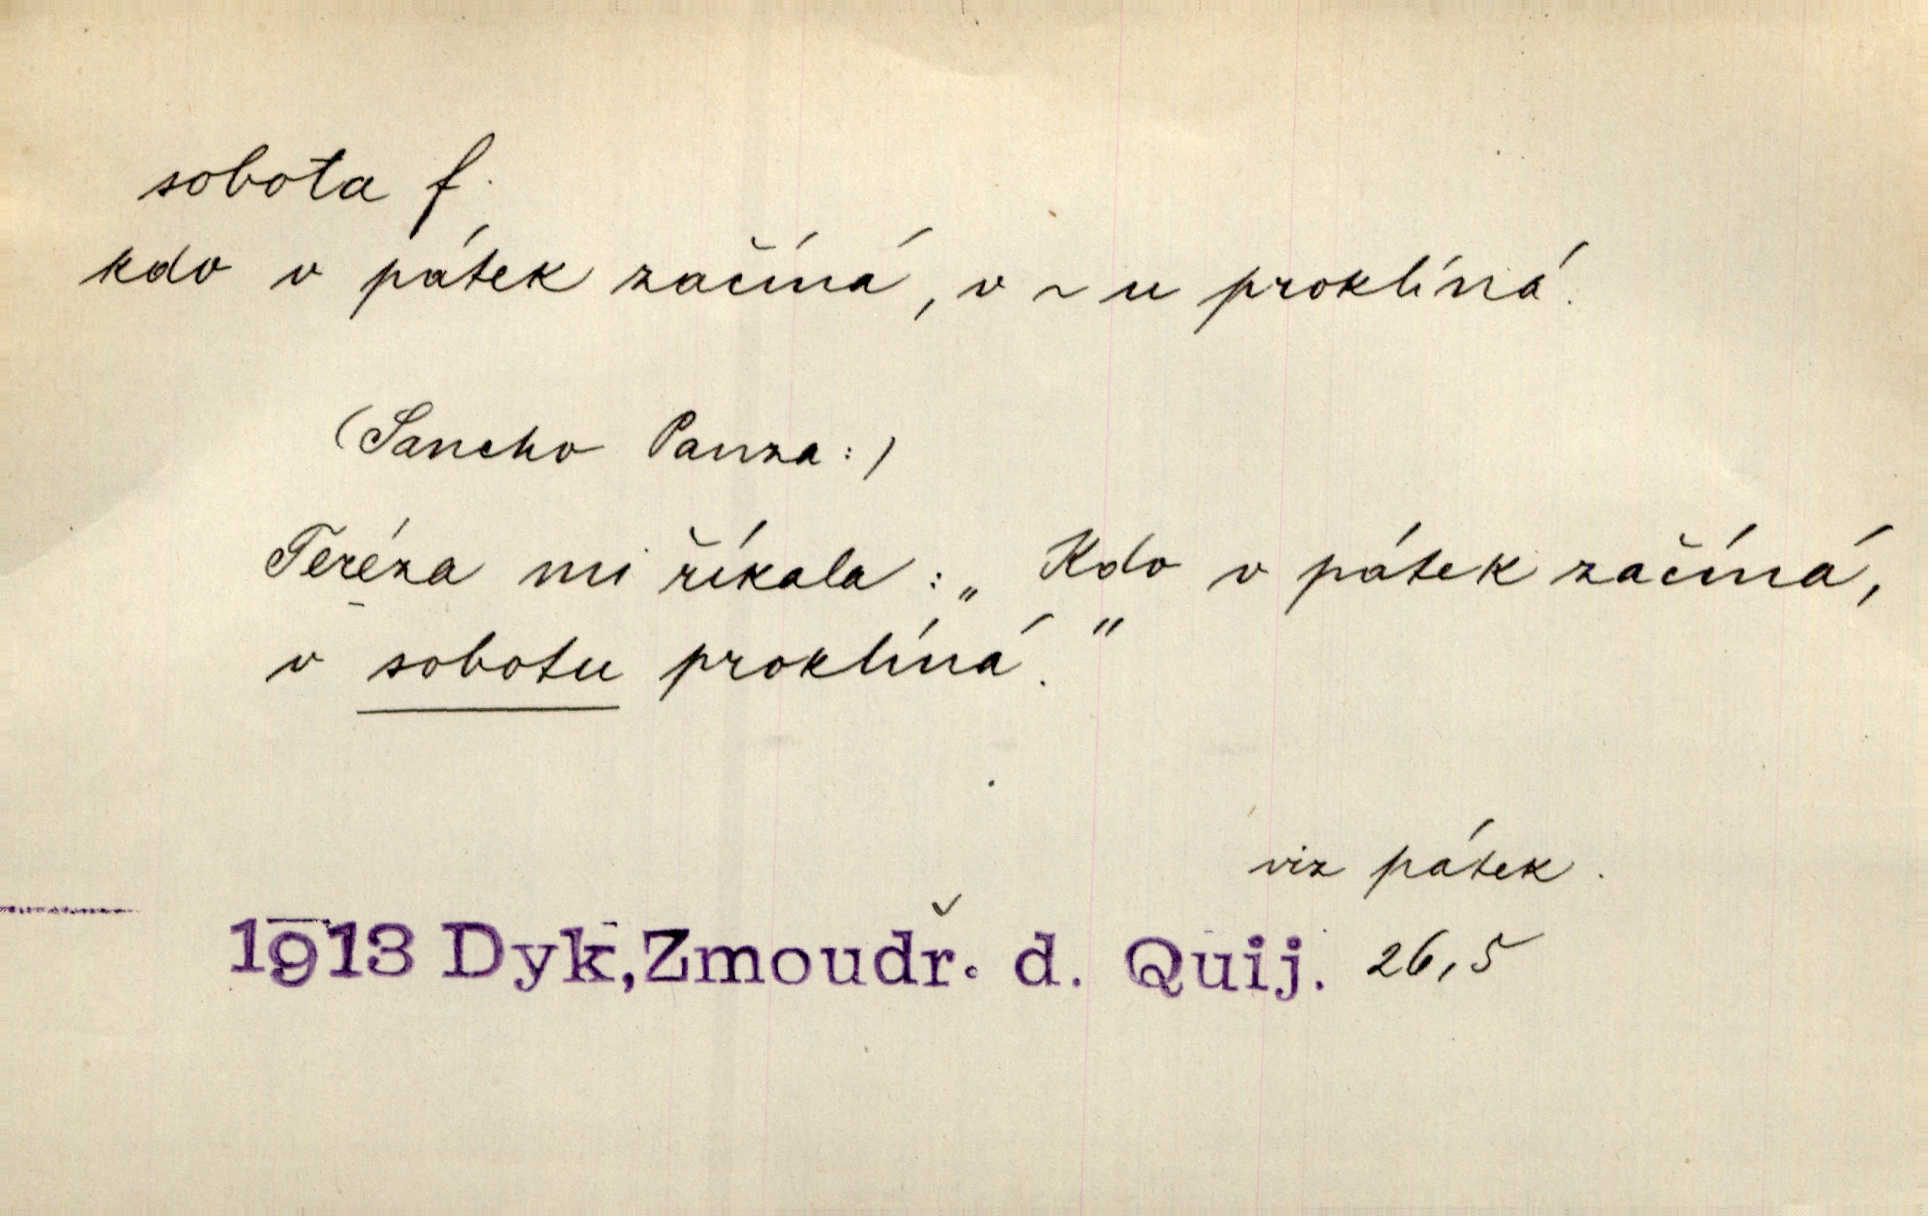 sobota f.
kdo v pátek začíná, v ~ u proklíná.
(Sancho Panza:)
Teréza mi říkala: „Kdo v pátek začíná,
v sobotu proklíná."
viz pátek.
1913 Dyk, Zmoudř. d. Quij. 26,5